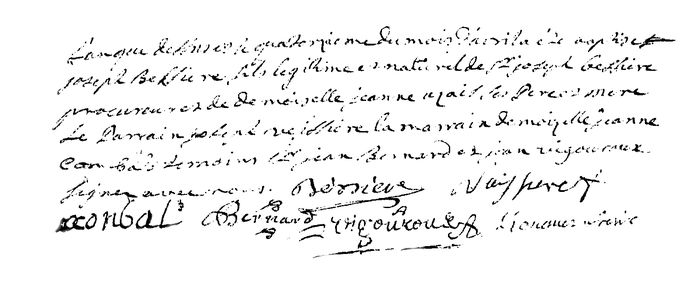 L'an que dessus le quatorzieme du mois d'avril a été baptisé
joseph Bessiere fils legitime et naturel de Sr joseph bessiere
procureur et de demoiselle jeanne ses Pere et mere
Le Parrain joseph veissiere la marraine demoizelle jeanne
Combals temoins Sr jean Bernard et jean rigouroux
signez avec nous Bessiere Vaissiere
combal Bernard rigouroux